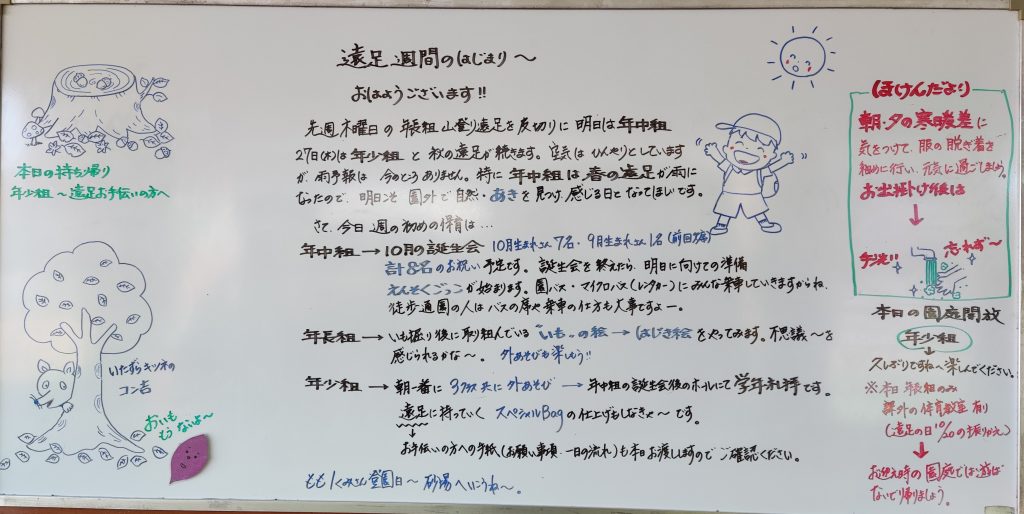 遠足週間のはじまり～
おはようございます!!
先週木曜日の年長組山登り遠足を皮切りに明日は年中組
27日(水)は年少組と秋の遠足が続きます。空気はひんやりとしています
が雨予報は今のところありません。特に年中組は春の遠足が雨に
なったので、明日こそ園外で自然・あきを見つけ、感じる日となってほしいです。
さて、今日週の初めの保育は…
年中組→10月の誕生会 10月生まれさん7名・9月生まれさん1名(前回欠席)
計8名のお祝い予定です。誕生会を終えたら、明日に向けての準備
えんそくごっこが始まります。園バス・マイクロバス(レンタカー)にみんな乗車していきますからね、
徒歩通園の人はバスの席や乗車の仕方も大事ですよー。
年長組→いも掘り後に取組んでいる"いも"の絵→はじき絵をやってみます。不思議～を
感じられるかな～。外あそびも楽しもう!!
年少組→朝一番に3クラス共に外あそび→年中組の誕生会後のホールにて学年礼拝です。
遠足に持っていくスペシャルBagの仕上げもしなきゃ～です。
お手伝いの方への手紙(お願い事項、一日の流れ)も本日お渡ししますのでご確認ください。
もも1くみさん登園日～砂場へいこうね～。
本日の持ち帰り
年少組～遠足お手伝いの方へ
いたずらキツネの
コン吉
おいも
もうないよ～
ほけんだより
朝・夕の寒暖差に
気をつけて、服の脱ぎ着を
組めに行い、元気に過ごしましょう。
お出掛け後は
手洗い
忘れず～
本日の園庭開放
年少組
久しぶりですね～楽しんでください。
※本日年長組のみ
課外の体育教室有り
(遠足の日10/20の振りかえ)
お迎え時の園庭では遊ば
ないで帰りましょう。